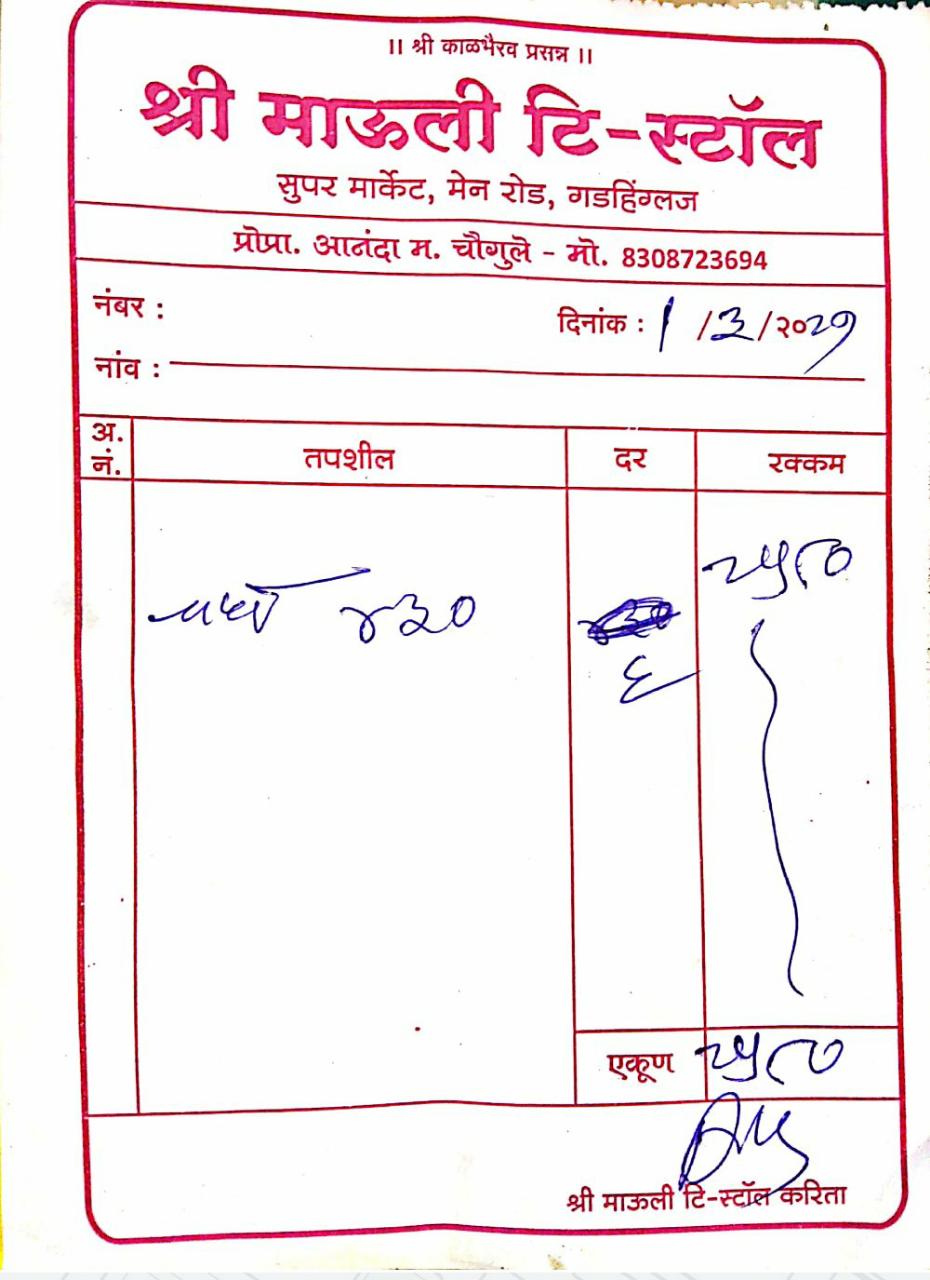 ॥ श्री काळभैरव प्रसन्न ॥
श्री माऊली टि-स्टॉल
सुपर मार्केट, मेन रोड, गडहिंग्लज
प्रोप्रा. आनंदा म. चौगुले - मो. 8308723694
नंबर :
दिनांक : १ /३/२०२१
नांव :
अ. नं. तपशील दर रक्कम
२५८०
४३०
६
एकूण २५८०
श्री माऊली टि-स्टॉल करिता